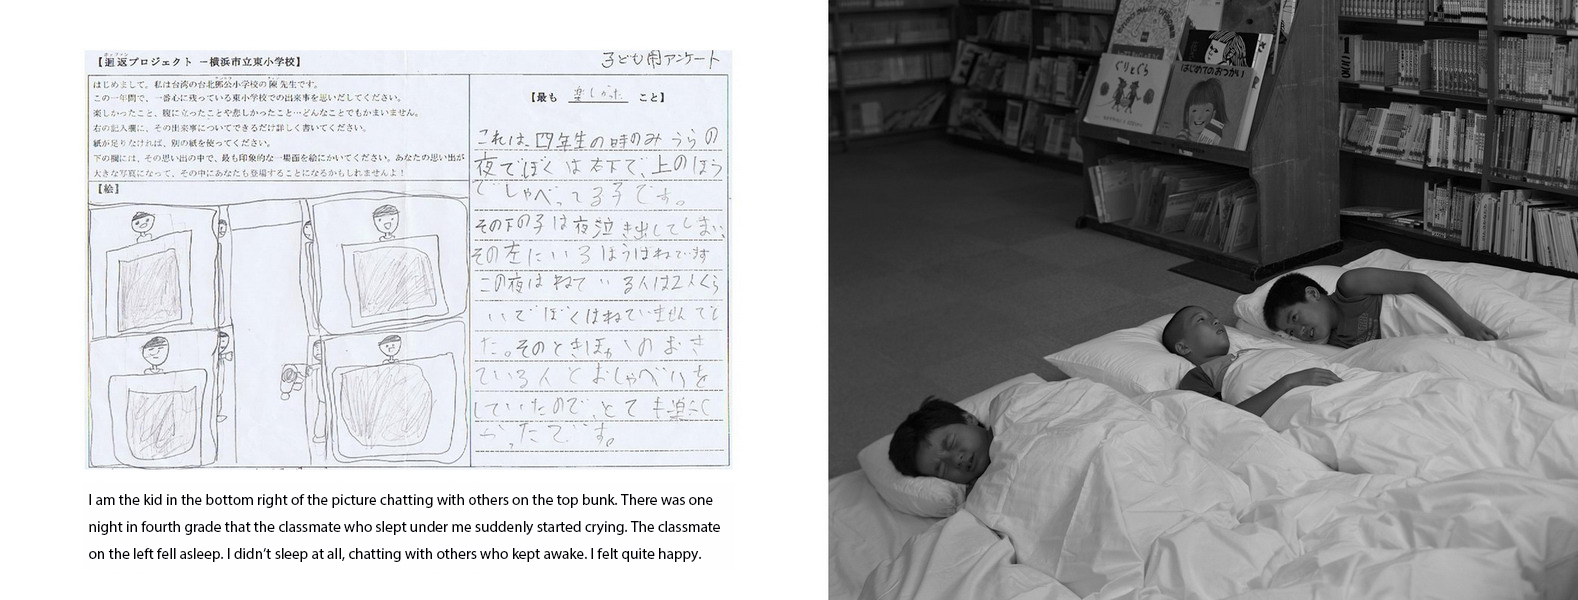 【迴返プロジェクト －横浜市立東小学校】
子ども用アンケート
はじめまして。私は台湾の台北郷公小学校の陳先生です。
この一年間で、一番心に残っている東小学校での出来事を思いだしてください。
楽しかったこと、腹に立ったことや悲しかったこと…どんなことでもかまいません。
右の記入欄に、その出来事についてできるだけ詳しく書いてください。
紙が足りなければ、別の紙を使ってください。
下の欄には、その思い出の中で、最も印象的な一場面を絵にかいてください。あなたの思い出が
大きな写真になって、その中にあなたも登場することになるかもしれませんよ！
【絵】
【最も 楽しかった こと】
これは、四年生の時のみうらの
夜でぼくは右下で、上のほう
でしゃべってる子です。
その下の子は夜泣き出してしまい、
その左にいるほうはねてます
この夜はねている人は2人くら
いでぼくはねていませんでし
た。そのときほかのおき
ている人とおしゃべりを
していたので、とても楽し
かったです。
I am the kid in the bottom right of the picture chatting with others on the top bunk. There was one
night in fourth grade that the classmate who slept under me suddenly started crying. The classmate
on the left fell asleep. I didn't sleep at all, chatting with others who kept awake. I felt quite happy.
ぐりとぐら
はじめてのおつかい